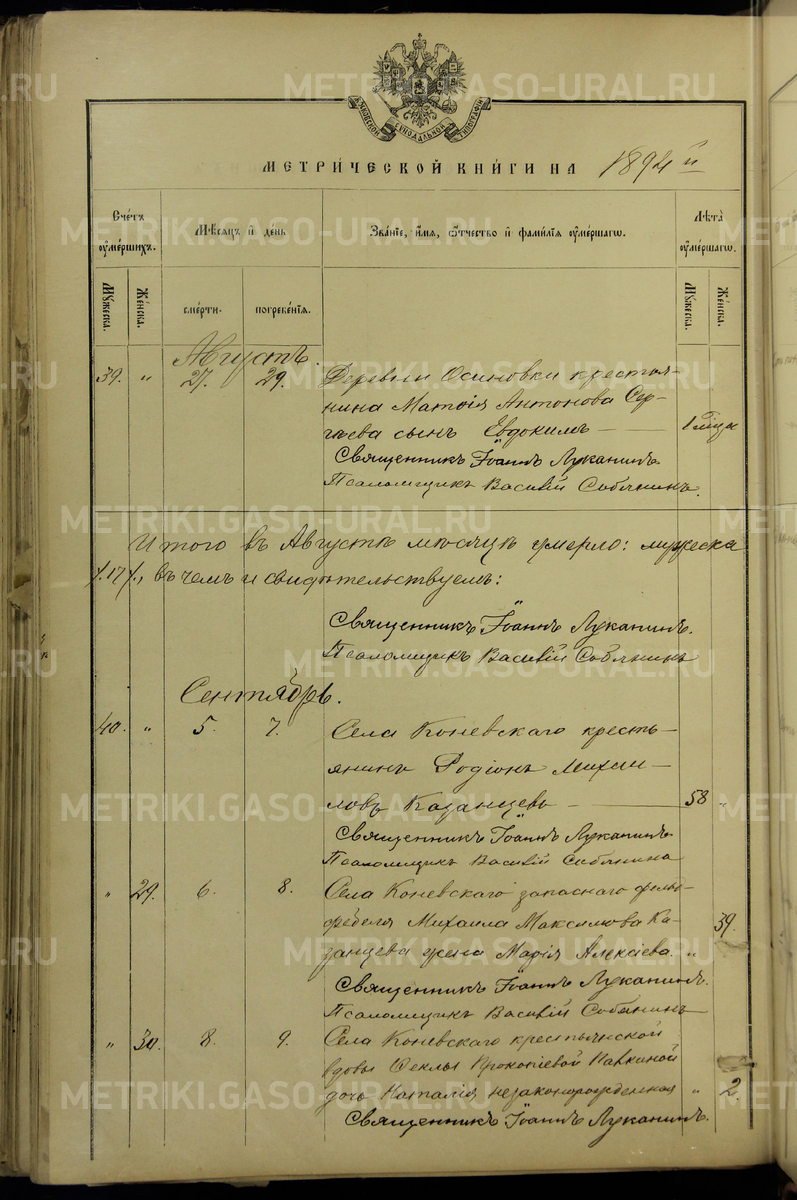 МОСКОВСКОЙ СИНОДАЛЬНОЙ ТИПОГРАФИИ
МЕТРИ́ЧЕСКОЙ КНИ́ГИ НА 1894 й
Сче́тъ ᲂу҆ме́ршихъ.
Мѣ́сѧцъ и҆ де́нь
Зва́нїе, и҆́мѧ, ѻ҆́тчество и҆ фами́лїѧ ᲂу҆ме́ршагѡ.
Лѣ́та ᲂу҆ме́ршагѡ.
Мꙋ́жеска.
Же́нска.
сме́рти.
погребе́нїѧ.
Мꙋ́жеска.
Же́нска.
Августъ.
39. " 27. 29. Деревни Осиновки крестья-
нина Матѳія Антонова Сер-
гѣева сынъ Евдокимъ — 1 мѣсяц
Священникъ Іоаннъ Луканинъ
Псаломщикъ Василій Собянинъ.
Итого въ Августѣ мѣсяцѣ умерло: мужеска
17, въ чемъ и свидѣтельствуемъ:
Священникъ Іоаннъ Луканинъ.
Псаломщикъ Василій Собянинъ
Сентябрь.
40. " 5. 7. Села Коневскаго кресть-
янинъ Родіонъ Михаи-
ловъ Казанцевъ — 58 "
Священникъ Іоаннъ Луканинъ
Псаломщикъ Василій Собянинъ
" 29. 6. 8. Села Коневскаго запаснаго фельд-
фебеля Михаила Максимова Ка-
занцева жена Марія Алексіева. " 39.
Священникъ Іоаннъ Луканинъ.
Псаломщикъ Василій Собянинъ
" 30. 8. 9. Села Коневскаго крестьянской
вдовы Ѳеклы Прокопіевой
дочь Наталія незаконорожденная " 2.
Священникъ Іоаннъ Луканинъ.
METRIKI.GASO-URAL.RU